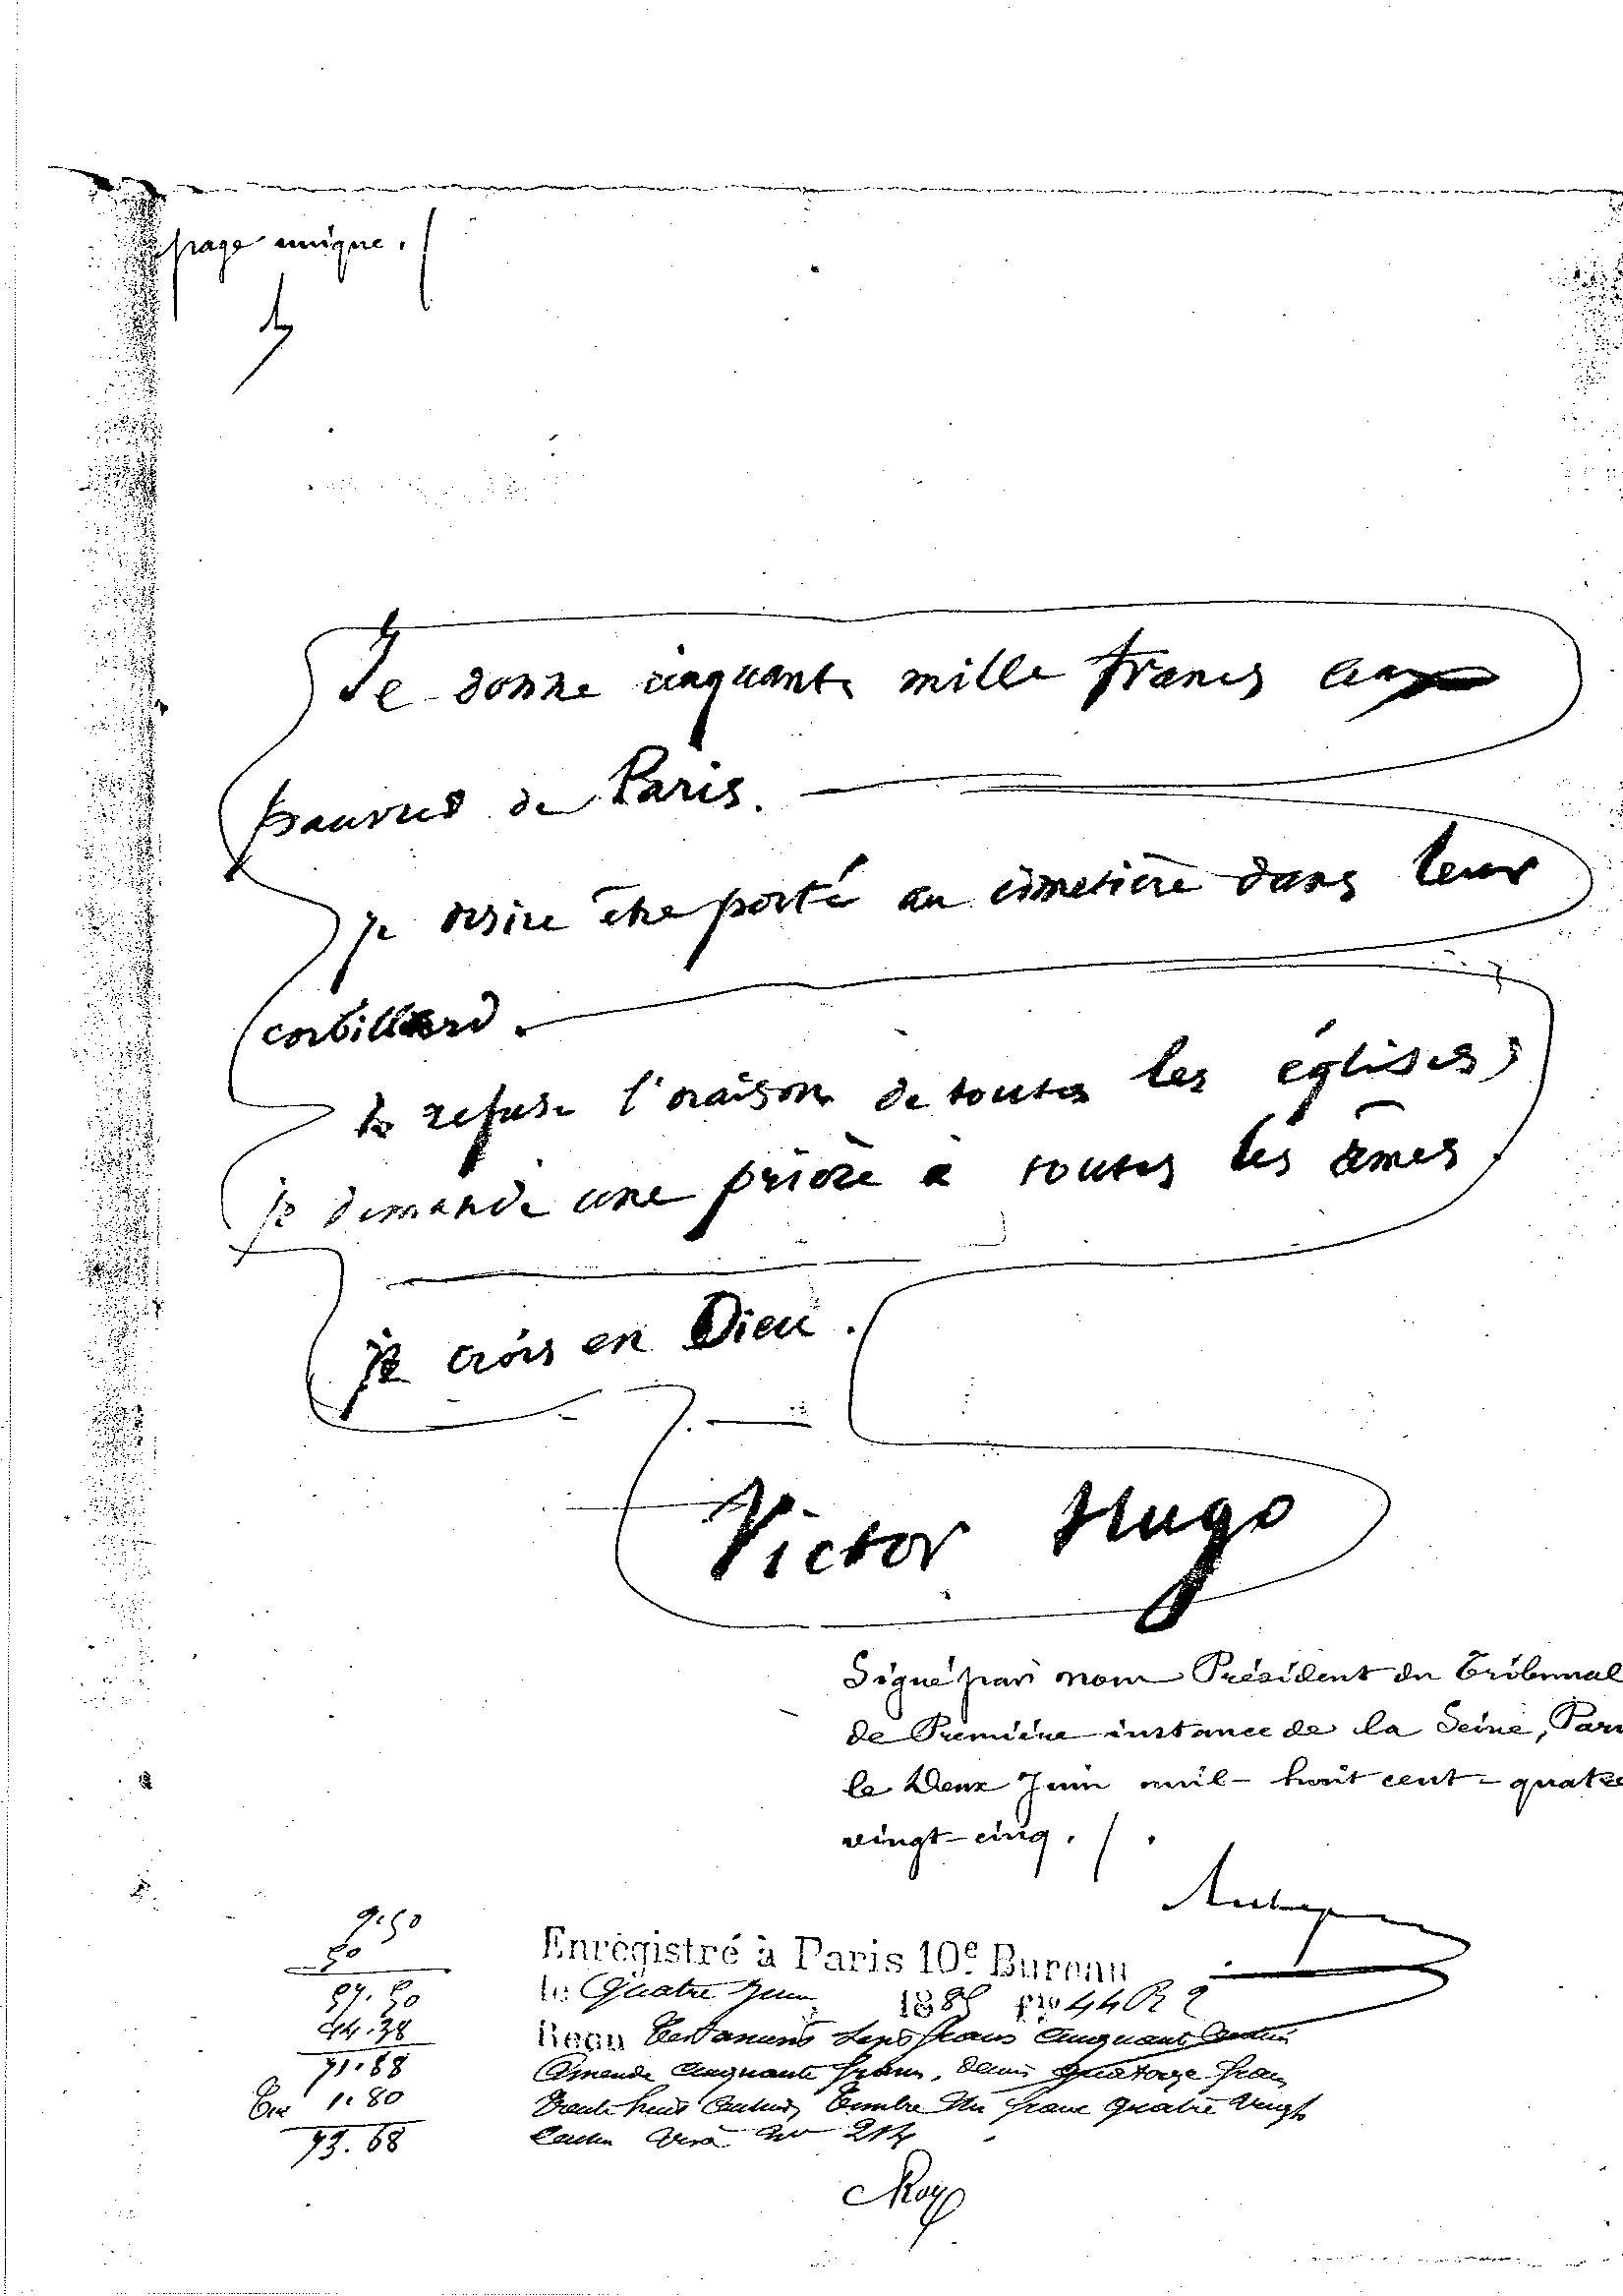 page unique.
Je donne cinquante mille francs aux
pauvres de Paris.
je desire être porté au cimetière dans leur
corbillard.
Je refuse l'oraison de toutes les églises;
je demande une prière à toutes les âmes.
je crois en Dieu.
Victor Hugo
Signé par nous Président du Tribunal
de Première instance de la Seine, Paris
le Deux Juin mil-huit cent-quatre
vingt-cinq./.
Enregistré à Paris 10e Bureau
le Quatre Juin 1885 fo 44 R
Reçu Testament sept francs cinquante centimes
Amende cinquante francs, Décimes quatorze francs
trente huit centimes, Timbre Un franc quatre vingt
centimes
7.50
50
57.50
14.38
71.88
1.80
73.68
Roy